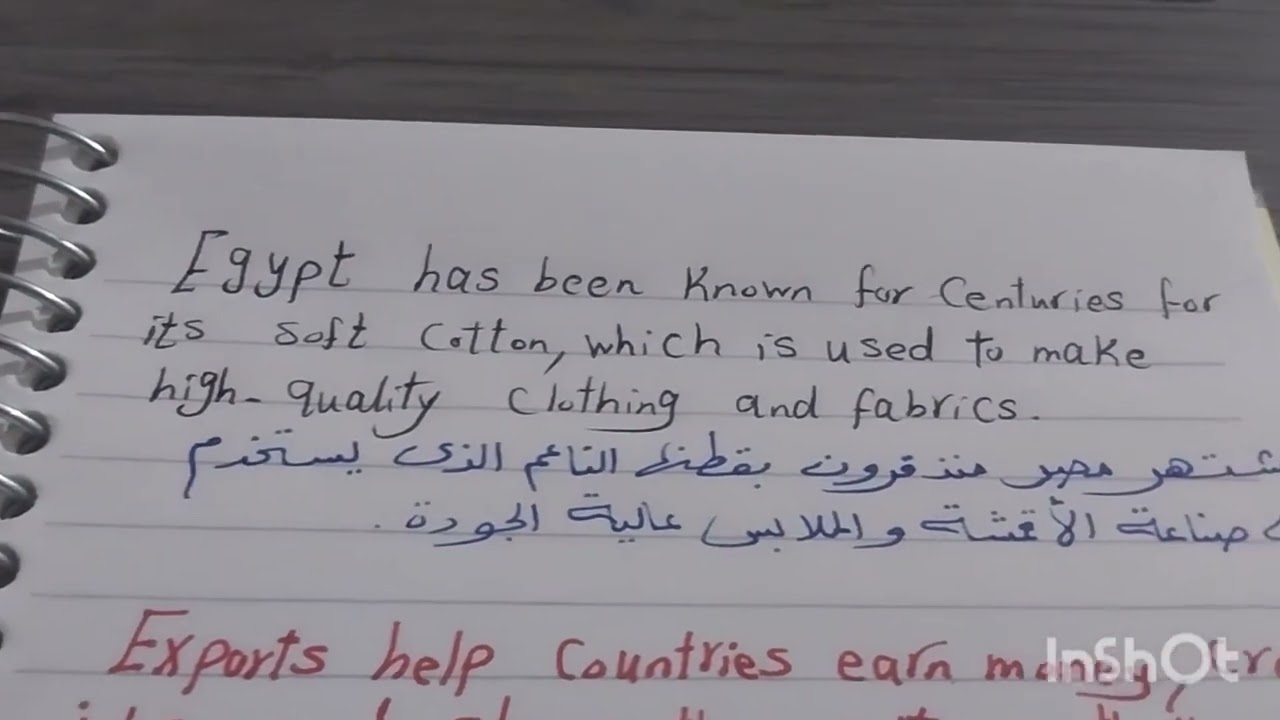 Egypt has been Known for Centuries for
its soft Cotton, which is used to make
high-quality Clothing and fabrics.
تشتهر مصر منذ قرون بقطنها الناعم الذى يستخدم
صناعة الأقمشة والملابس عالية الجودة.
Exports help Countries earn money,
InShOt